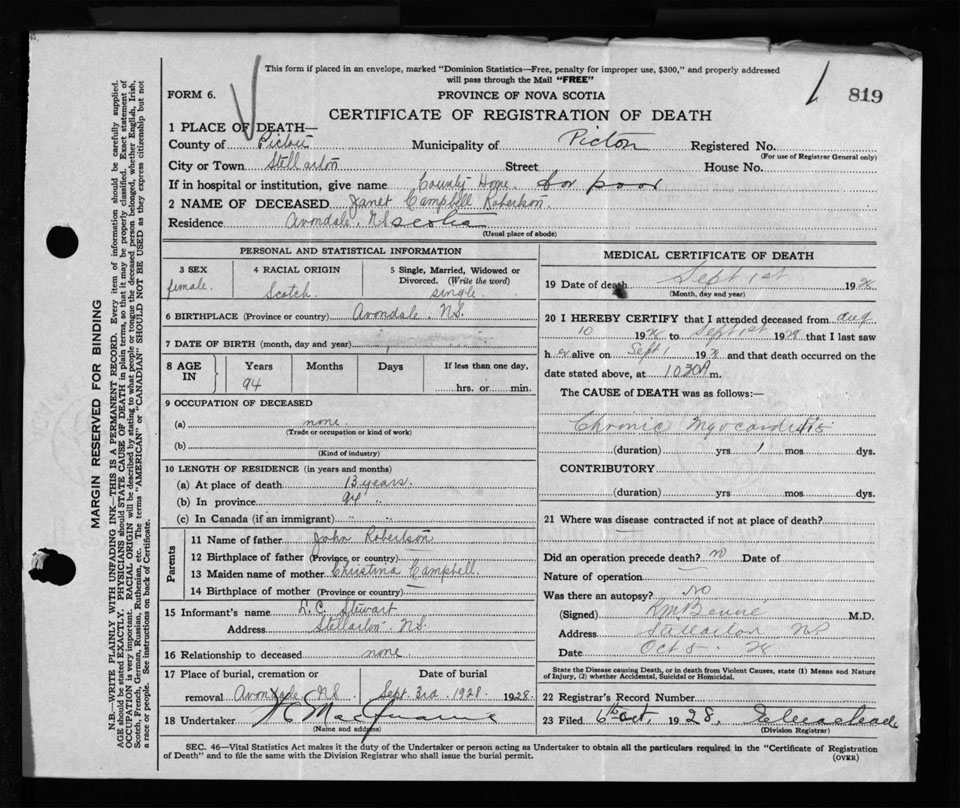 This form if placed in an envelope, marked "Dominion Statistics—Free, penalty for improper use, $300," and properly addressed
will pass through the Mail "FREE"
819
FORM 6.
PROVINCE OF NOVA SCOTIA
CERTIFICATE OF REGISTRATION OF DEATH
1 PLACE OF DEATH—
County of Pictou Municipality of Picton Registered No.
(For use of Registrar General only)
City or Town Stellarton Street House No.
If in hospital or institution, give name County Home for poor
2 NAME OF DECEASED Janet Campbell Robertson
Residence Avondale, N.S. scotia
(Usual place of abode)
PERSONAL AND STATISTICAL INFORMATION
3 SEX
female.
4 RACIAL ORIGIN
Scotch
5 Single, Married, Widowed or
Divorced. (Write the word)
single
6 BIRTHPLACE (Province or country) Avondale N.S.
7 DATE OF BIRTH (month, day and year)
8 AGE IN
Years Months Days If less than one day,
94 hrs. or min.
9 OCCUPATION OF DECEASED
(a) none
(Trade or occupation or kind of work)
(b)
(Kind of industry)
10 LENGTH OF RESIDENCE (in years and months)
(a) At place of death 13 years.
(b) In province 94 "
(c) In Canada (if an immigrant) " "
Parents
11 Name of father John Robertson
12 Birthplace of father (Province or country) —
13 Maiden name of mother Christina Campbell.
14 Birthplace of mother (Province or country) —
15 Informant's name L. C. Stewart
Address Stellarton N.S.
16 Relationship to deceased none
17 Place of burial, cremation or Date of burial
removal Avondale N.S Sept. 3rd 1928 1928.
18 Undertaker
(Name and address)
MEDICAL CERTIFICATE OF DEATH
19 Date of death Sept 1st 1928
(Month, day and year)
20 I HEREBY CERTIFY that I attended deceased from Aug
10 1928 to Sept 1st 1928 that I last saw
h er alive on Sept 1 1928 and that death occurred on the
date stated above, at 1030A m.
The CAUSE of DEATH was as follows:—
Chronic Myocarditis
(duration) yrs 1 mos dys.
CONTRIBUTORY
(duration) yrs mos dys.
21 Where was disease contracted if not at place of death?
Did an operation precede death? no Date of
Nature of operation
Was there an autopsy? No
(Signed) M.D.
Address Stellarton NS
Date Oct 5 28
State the Disease causing Death, or in death from Violent Causes, state (1) Means and Nature
of Injury, (2) whether Accidental, Suicidal or Homicidal.
22 Registrar's Record Number
23 Filed 6th Oct, 1928,
(Division Registrar)
SEC. 46—Vital Statistics Act makes it the duty of the Undertaker or person acting as Undertaker to obtain all the particulars required in the "Certificate of Registration
of Death" and to file the same with the Division Registrar who shall issue the burial permit.
(OVER)
MARGIN RESERVED FOR BINDING
N.B.—WRITE PLAINLY WITH UNFADING INK—THIS IS A PERMANENT RECORD. Every item of information should be carefully supplied.
AGE should be stated EXACTLY. PHYSICIANS should STATE CAUSE OF DEATH in plain terms, so that it may be properly classified. Exact statement of
OCCUPATION is very important. RACIAL ORIGIN will be described by stating to what people or tongue the deceased person belonged, whether English, Irish,
Scotch, French, German, Russian, Ruthenian, etc. The terms "AMERICAN" or "CANADIAN" SHOULD NOT BE USED as they express citizenship but not
a race or people. See instructions on back of Certificate.